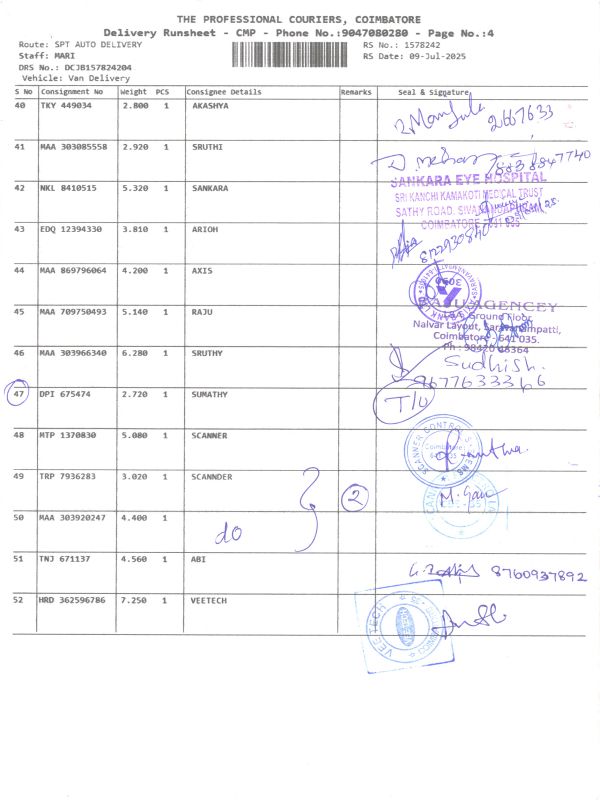 THE PROFESSIONAL COURIERS, COIMBATORE
Delivery Runsheet - CMP - Phone No.:9047080280 - Page No.:4
Route: SPT AUTO DELIVERY RS No.: 1578242
Staff: MARI RS Date: 09-Jul-2025
DRS No.: DCJB157824204
Vehicle: Van Delivery
S No Consignment No Weight PCS Consignee Details Remarks Seal & Signature
40 TKY 449034 2.800 1 AKASHYA
41 MAA 303085558 2.920 1 SRUTHI
8838847740
42 NKL 8410515 5.320 1 SANKARA
SANKARA EYE HOSPITAL
SRI KANCHI KAMAKOTI MEDICAL TRUST
SATHY ROAD,
COIMBATORE
43 EDQ 12394330 3.810 1 ARIOH
44 MAA 869796064 4.200 1 AXIS
45 MAA 709750493 5.140 1 RAJU
RAJU AGENCEY
Ground Floor
Nalvar Layout, Saravanampatti,
Coimbatore - 641 035.
46 MAA 303966340 6.280 1 SRUTHY
Sudhish.
9677633366
47 DPI 675474 2.720 1 SUMATHY
48 MTP 1370830 5.080 1 SCANNER
SCANNER CONTROL SYSTEMS
49 TRP 7936283 3.020 1 SCANNDER
2
50 MAA 303920247 4.400 1
do
51 TNJ 671137 4.560 1 ABI
8760937892
52 HRD 362596786 7.250 1 VEETECH
VEETECH